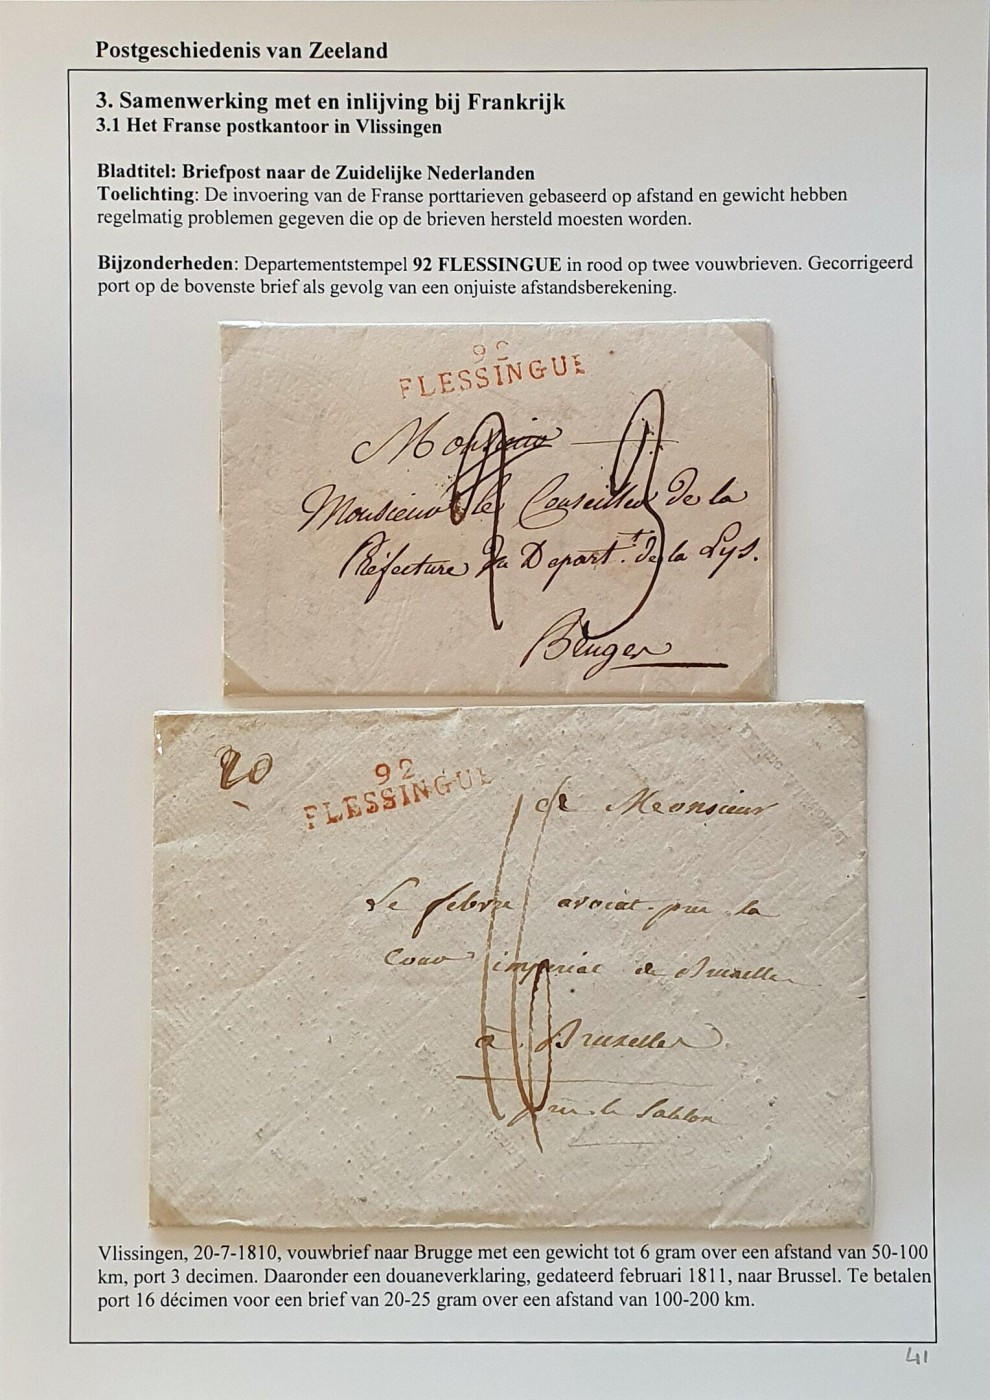 Postgeschiedenis van Zeeland
3. Samenwerking met en inlijving bij Frankrijk
3.1 Het Franse postkantoor in Vlissingen
Bladtitel: Briefpost naar de Zuidelijke Nederlanden
Toelichting: De invoering van de Franse porttarieven gebaseerd op afstand en gewicht hebben
regelmatig problemen gegeven die op de brieven hersteld moesten worden.
Bijzonderheden: Departementstempel 92 FLESSINGUE in rood op twee vouwbrieven. Gecorrigeerd
port op de bovenste brief als gevolg van een onjuiste afstandsberekening.
92
FLESSINGUE
Monsieur
Monsieur le Conseiller de la
Préfecture du Depart.t de la Lys.
20
92
FLESSINGUE
Monsieur
Le febvre avocat
imperial de Bruxelles
à Bruxelles
Vlissingen, 20-7-1810, vouwbrief naar Brugge met een gewicht tot 6 gram over een afstand van 50-100
km, port 3 decimen. Daaronder een douaneverklaring, gedateerd februari 1811, naar Brussel. Te betalen
port 16 décimen voor een brief van 20-25 gram over een afstand van 100-200 km.
41